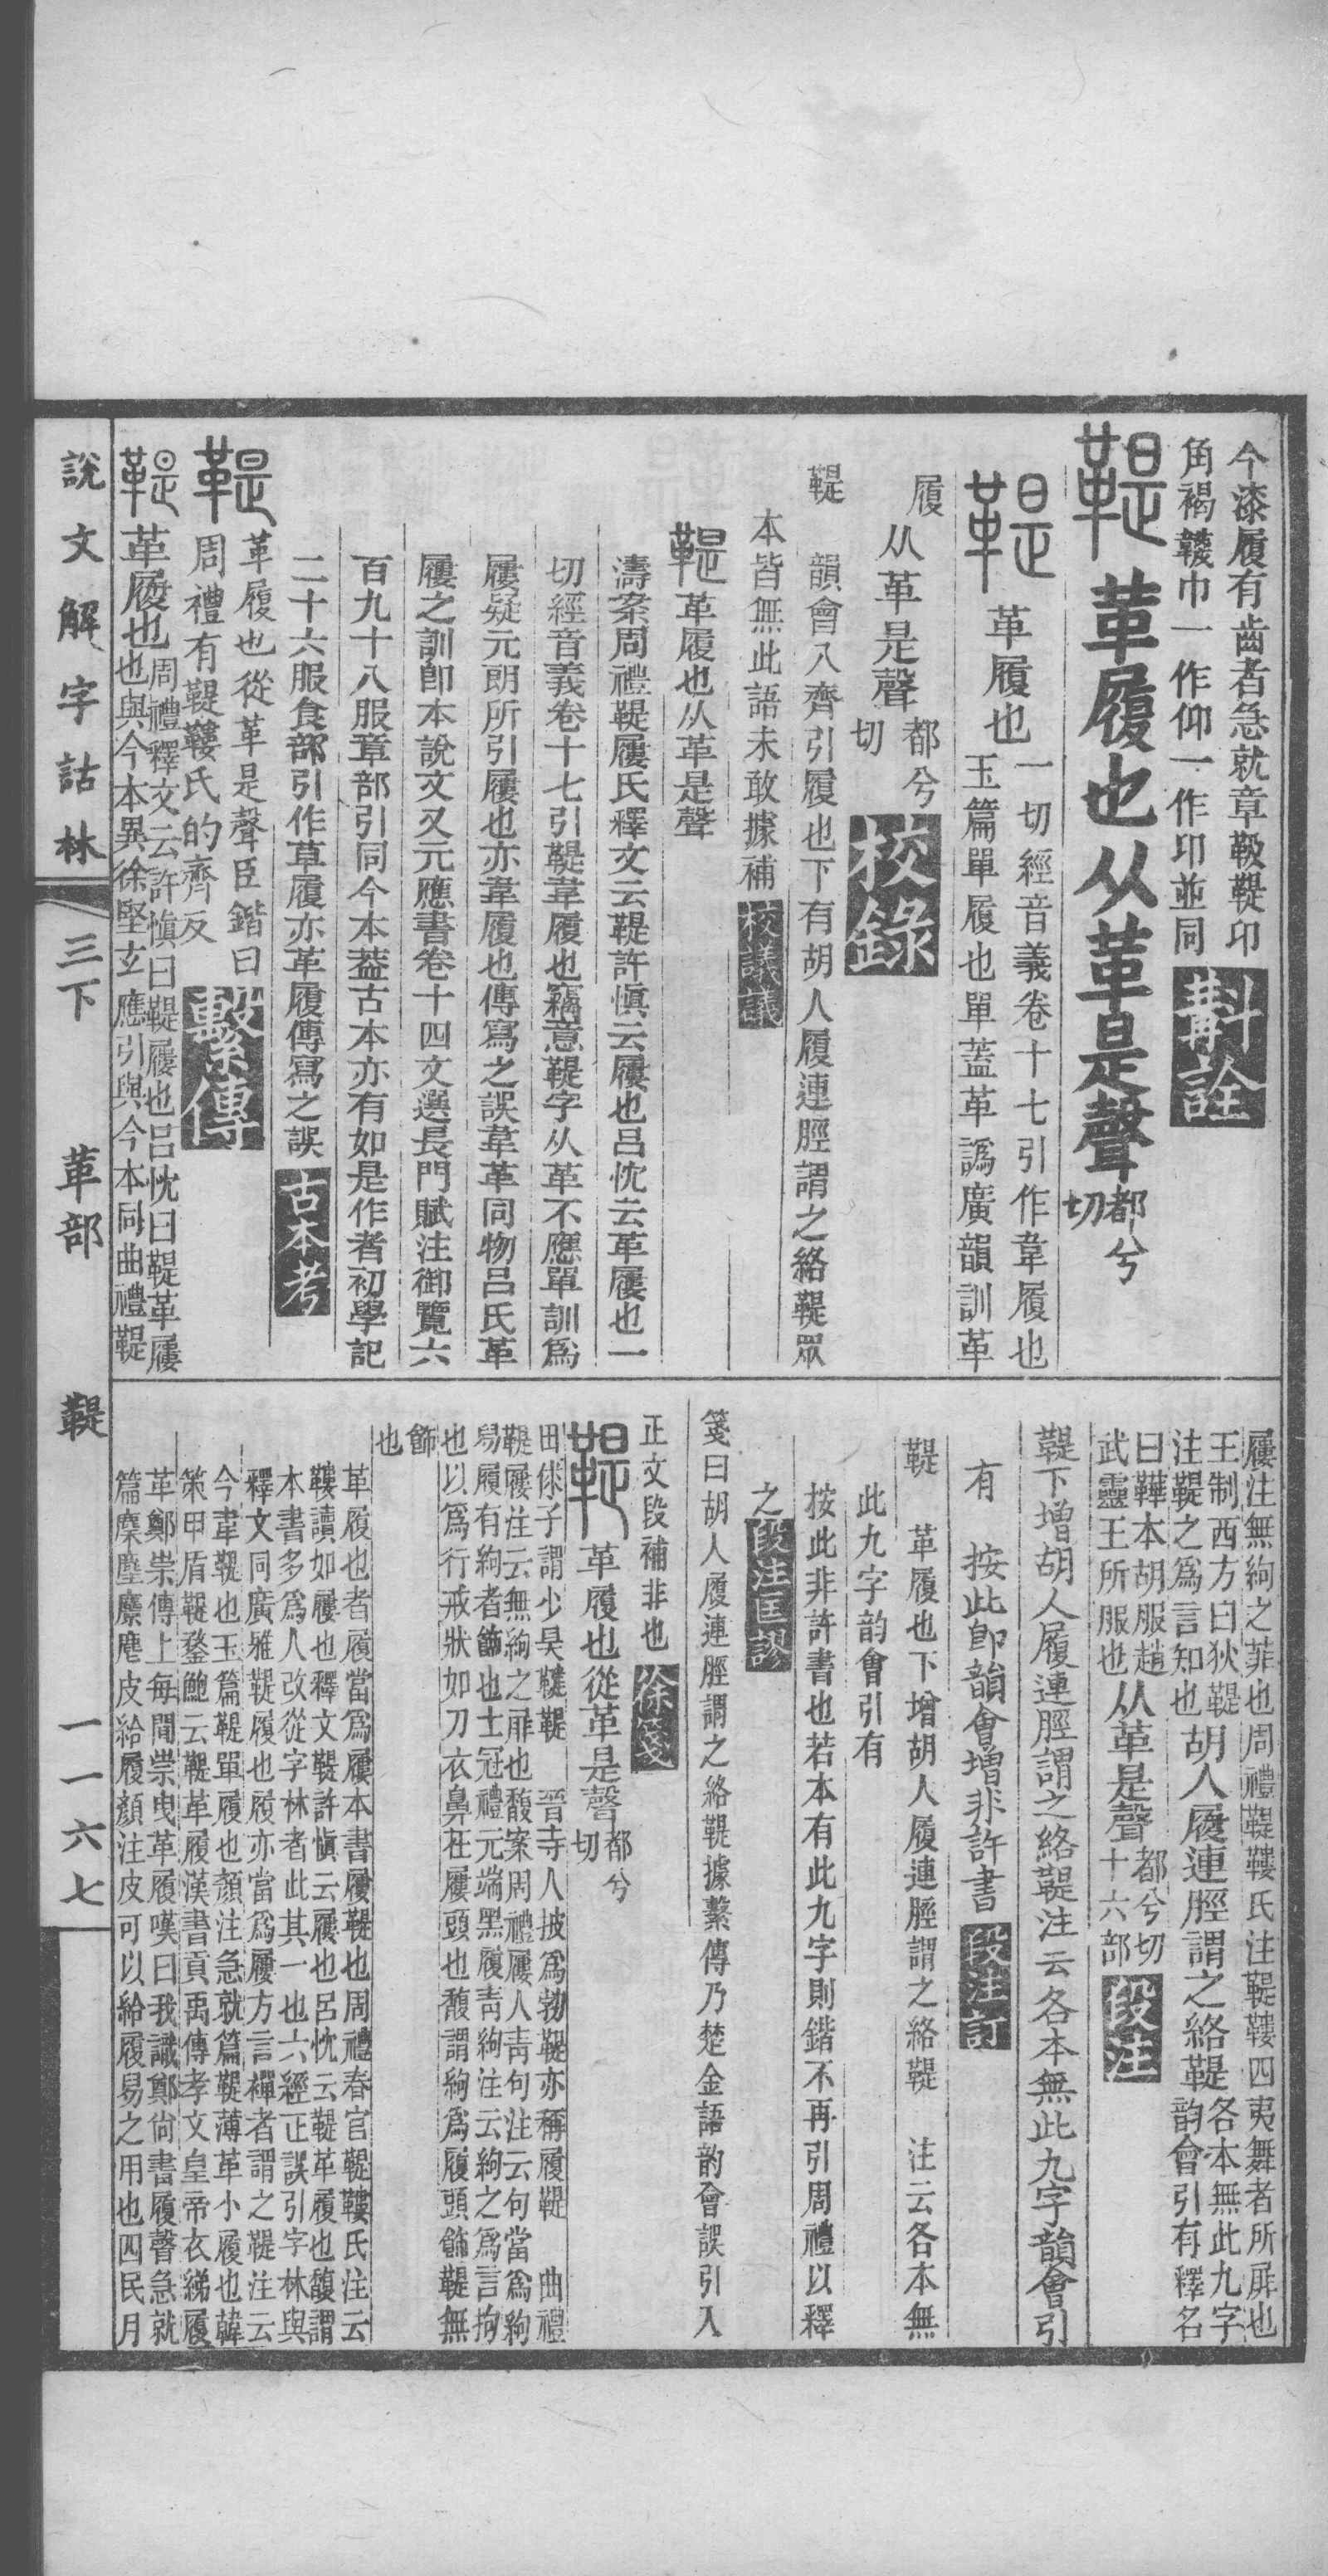 今漆履有齒者急就章靸鞮卬
角褐韤巾一作仰一作卬並同
斠詮
鞮 革履也从革是聲 都兮切
鞮 革履也 一切經音義卷十七引作韋履也
玉篇單履也單蓋革譌廣韻訓革
履 从革是聲 都兮切 校錄
鞮 韻會八齊引履也下有胡人履連脛謂之絡鞮眾
本皆無此語未敢據補 校議議
鞮 革履也从革是聲
濤案周禮鞮屨氏釋文云鞮許愼云屨也呂忱云革屨也一
切經音義卷十七引鞮韋履也竊意鞮字从革不應單訓爲
屨疑元朗所引屨也亦韋履也傳寫之誤韋革同物呂氏革
屨之訓卽本說文又元應書卷十四文選長門賦注御覽六
百九十八服章部引同今本葢古本亦有如是作者初學記
二十六服食部引作草履亦革履傳寫之誤 古本考
鞮 革履也從革是聲臣鍇曰
周禮有鞮鞻氏的齊反 繫傳
鞮 革履也 周禮釋文云許愼曰鞮屨也呂忱曰鞮革屨
也與今本異徐堅玄應引與今本同曲禮鞮
屨注無絇之菲也周禮鞮鞻氏注鞮鞻四夷舞者所屝也
王制西方曰狄鞮
注鞮之爲言知也 胡人履連脛謂之絡鞮 各本無此九字
韵會引有釋名
曰鞾本胡服趙
武靈王所服也 从革是聲 都兮切
十六部 段注
鞮下增胡人履連脛謂之絡鞮注云各本無此九字韻會引
有 按此卽韻會增非許書 段注訂
鞮 革履也下增胡人履連脛謂之絡鞮 注云各本無
此九字韵會引有
按此非許書也若本有此九字則鍇不再引周禮以釋
之 段注匡謬
箋曰胡人履連脛謂之絡鞮據繫傳乃楚金語韵會誤引入
正文段補非也 徐箋
鞮 革履也從革是聲 都兮切
田俅子謂少昊鞬鞮 晉寺人披爲勃鞮亦稱履鞮 曲禮
鞮屨注云無絇之屝也馥案周禮屨人靑句注云句當爲絇
易履有絇者飾也士冠禮元端黑屨靑絇注云絇之爲言拘
也以爲行戒狀如刀衣鼻在屨頭也馥謂絇爲履頭飾鞮無
飾
也
革履也者履當爲屨本書屨鞮也周禮春官鞮鞻氏注云
鞻讀如屨也釋文鞮許愼云屨也呂忱云鞮革履也馥謂
本書多爲人改從字林者此其一也六經正誤引字林與
釋文同廣雅鞮履也履亦當爲屨方言襌者謂之鞮注云
今韋鞮也玉篇鞮單履也顏注急就篇鞮薄革小履也韓
策甲盾鞮鍪鮑云鞮革履漢書貢禹傳孝文皇帝衣綈履
革鄭崇傳上每聞崇曳革履嘆曰我識鄭尙書履聲急就
篇麇麈麖麀皮給履顏注皮可以給履易之用也四民月
說文解字詁林 三下 革部 鞮 一一六七